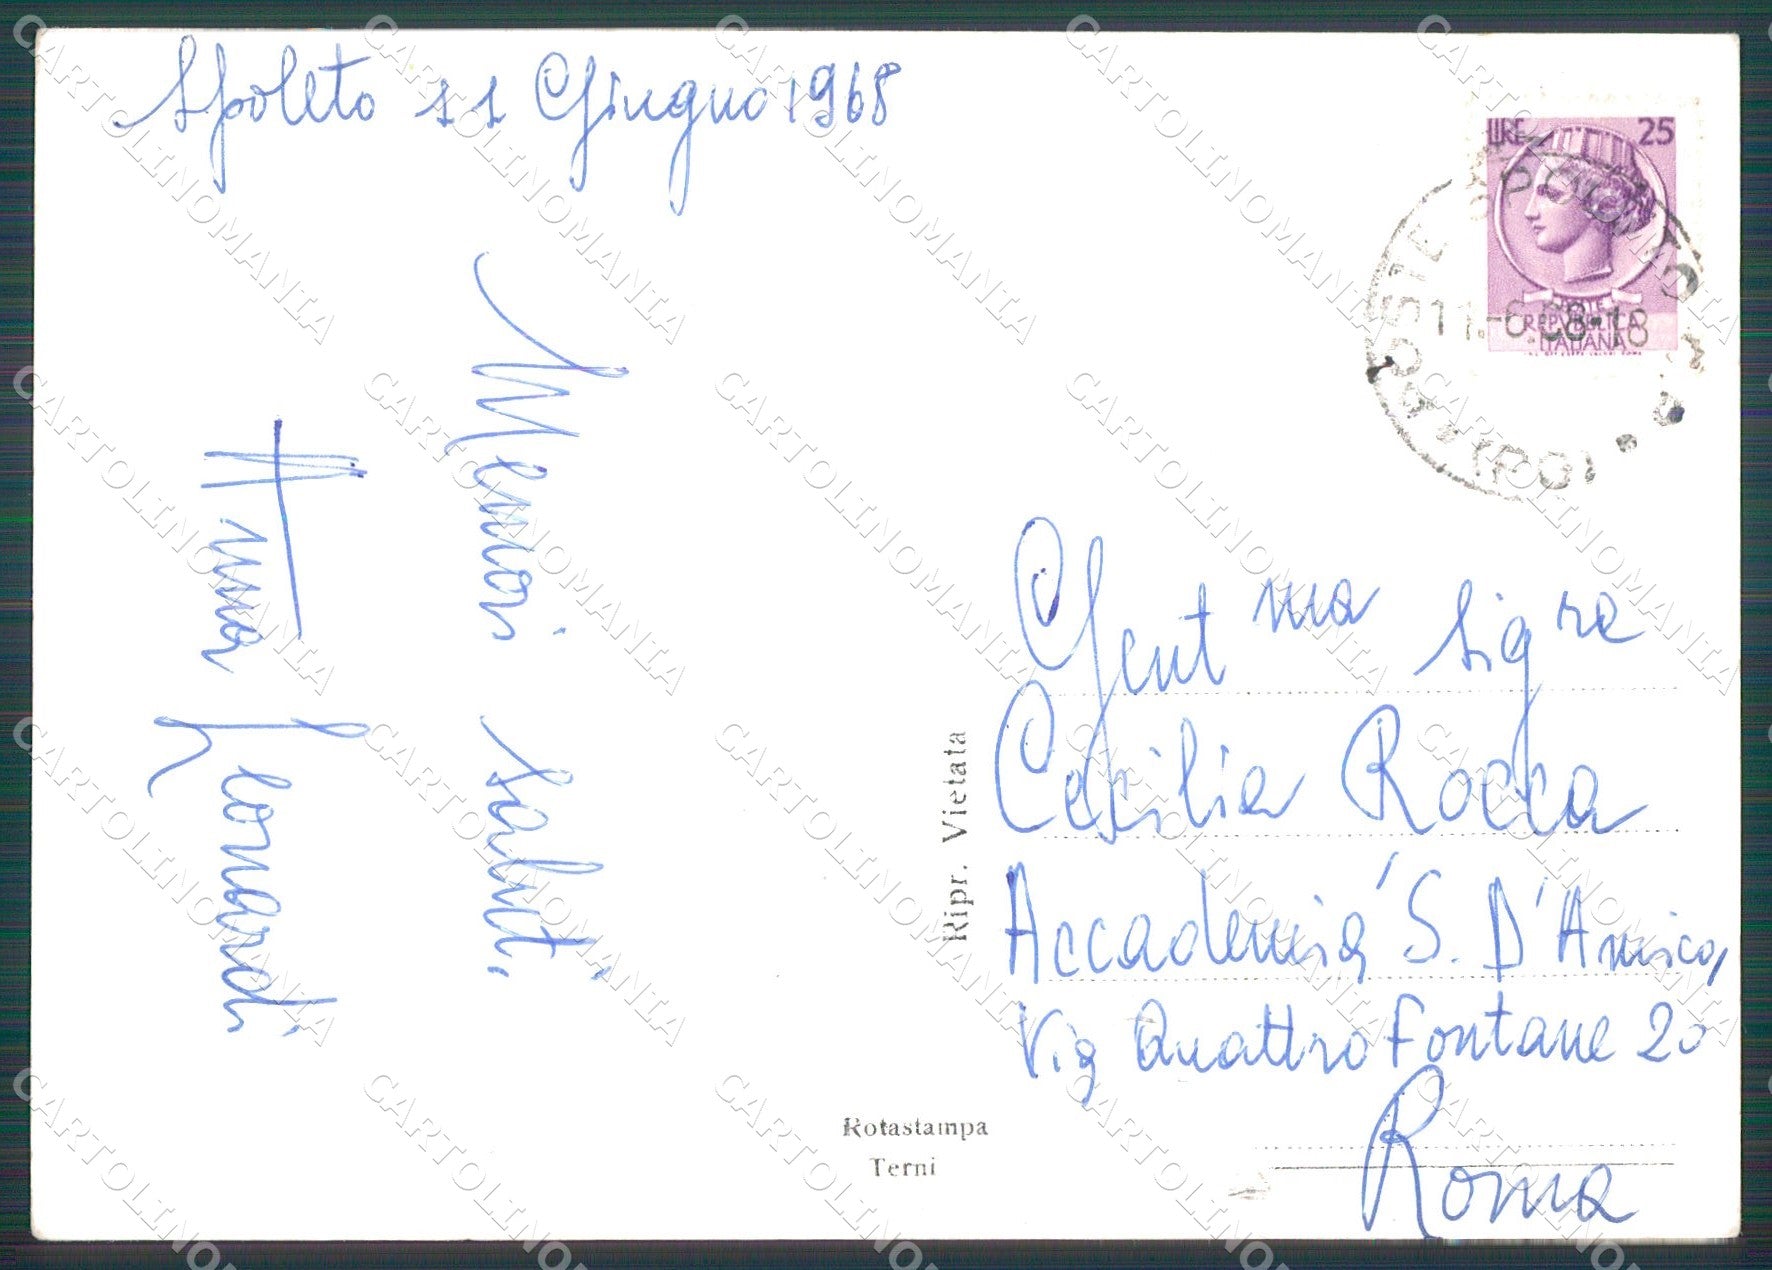 Spoleto 11 Giugno 1968
Memori saluti,
Anna Leonardi
LIRE 25
POSTE
REPVBBLICA
ITALIANA
POSTE
SPOLETO
11-6.68-18
(PG)
Gent ma Sig ra
Cecilia Rocca
Accademia S. D'Amico,
Via Quattro Fontane 20
Roma
Ripr. Vietata
Rotastampa
Terni
CARTOLINOMANIA